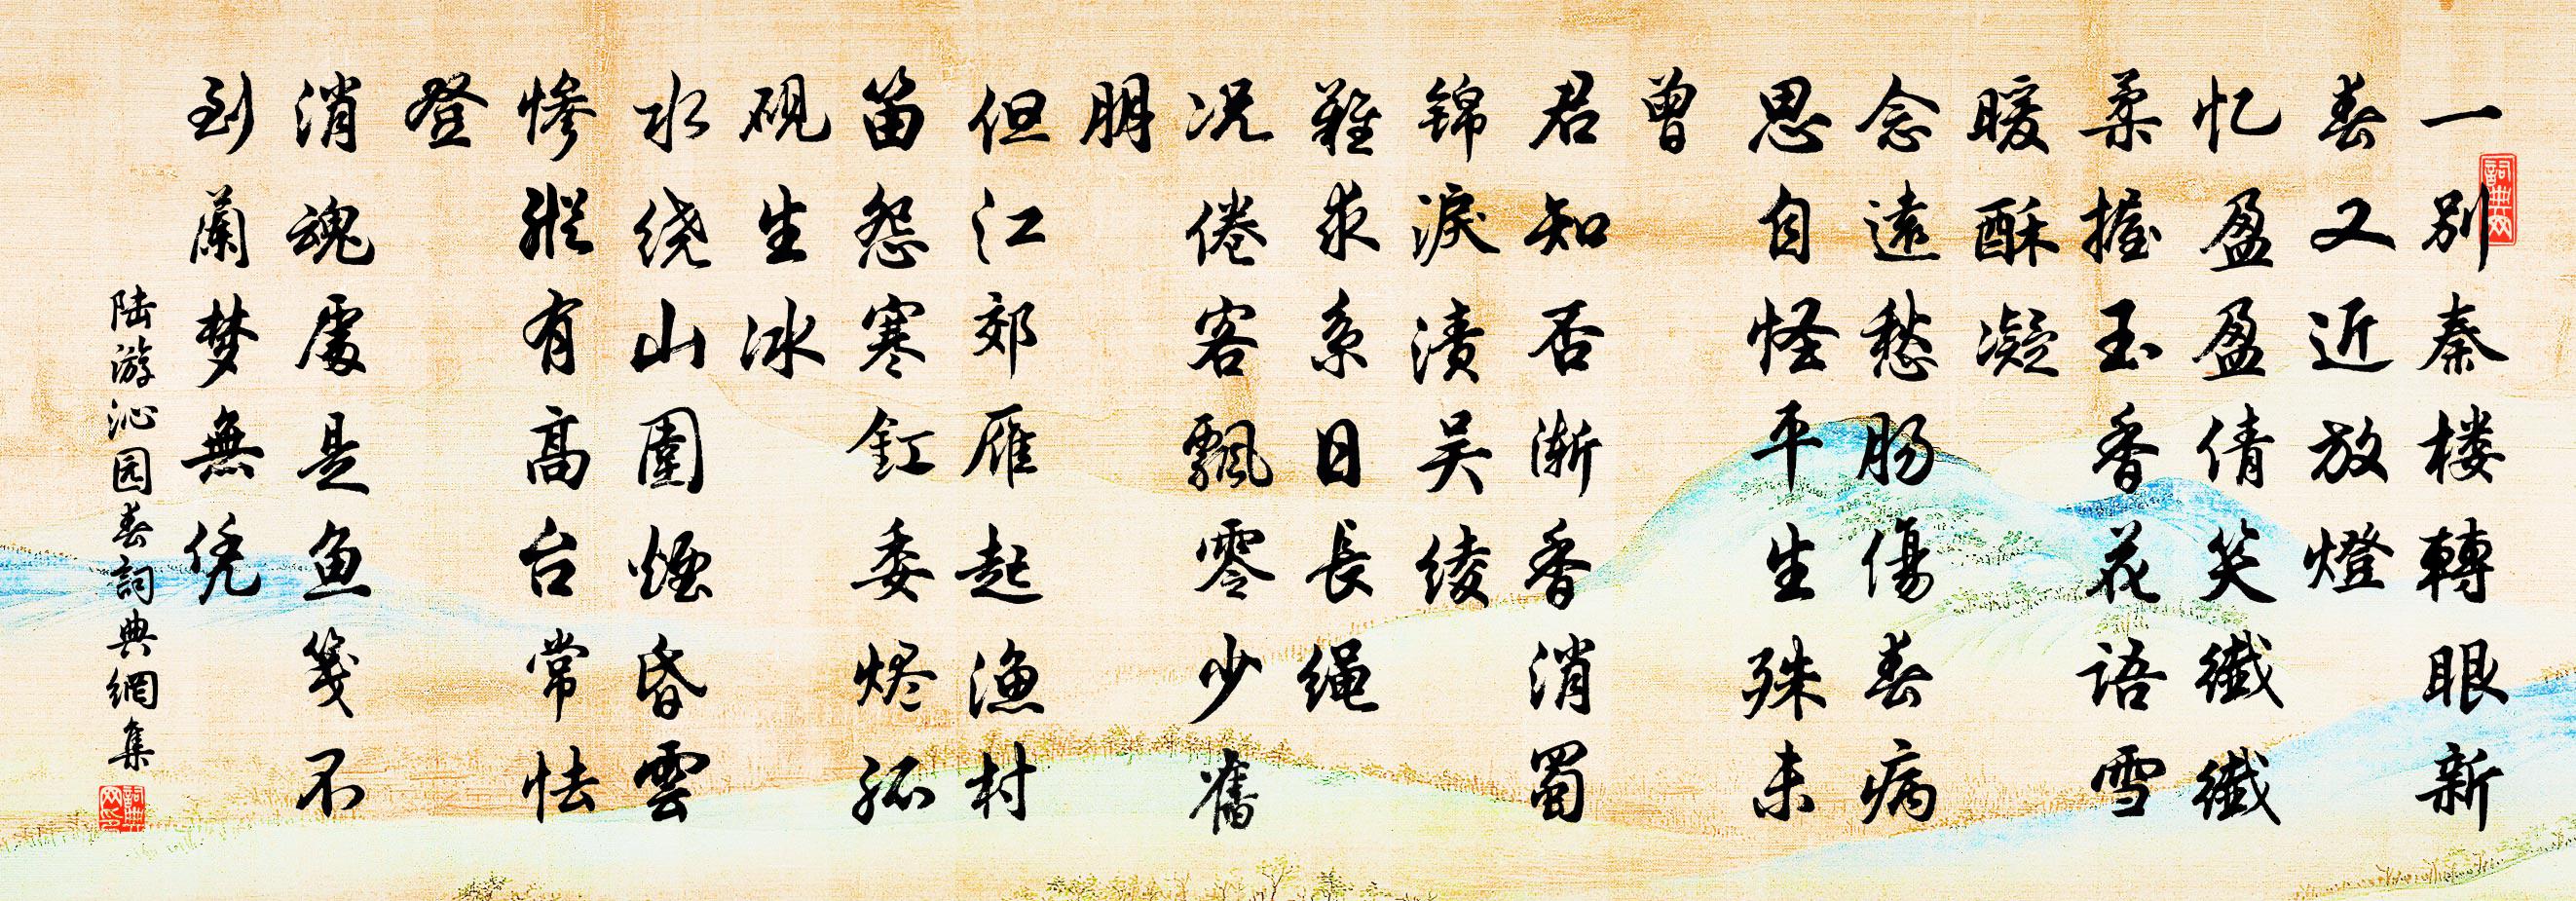 一别秦楼轉眼新
春又近放燈
忆盈盈倩笑纖纖
柔握玉香花語雪
暖酥凝
念遠愁肠傷春病
思自怪平生殊未
曾
君知否渐香消蜀
锦淚渍吴绫
難求系日長绳
况倦客飄零少舊
朋
但江郊雁起渔村
笛怨寒釭委烬孤
砚生冰
水绕山圍煙昏雲
惨縱有高台常怯
登
消魂處是鱼笺不
到蘭梦無凭
陆游沁园春詞典網集
詞典网
詞典网印